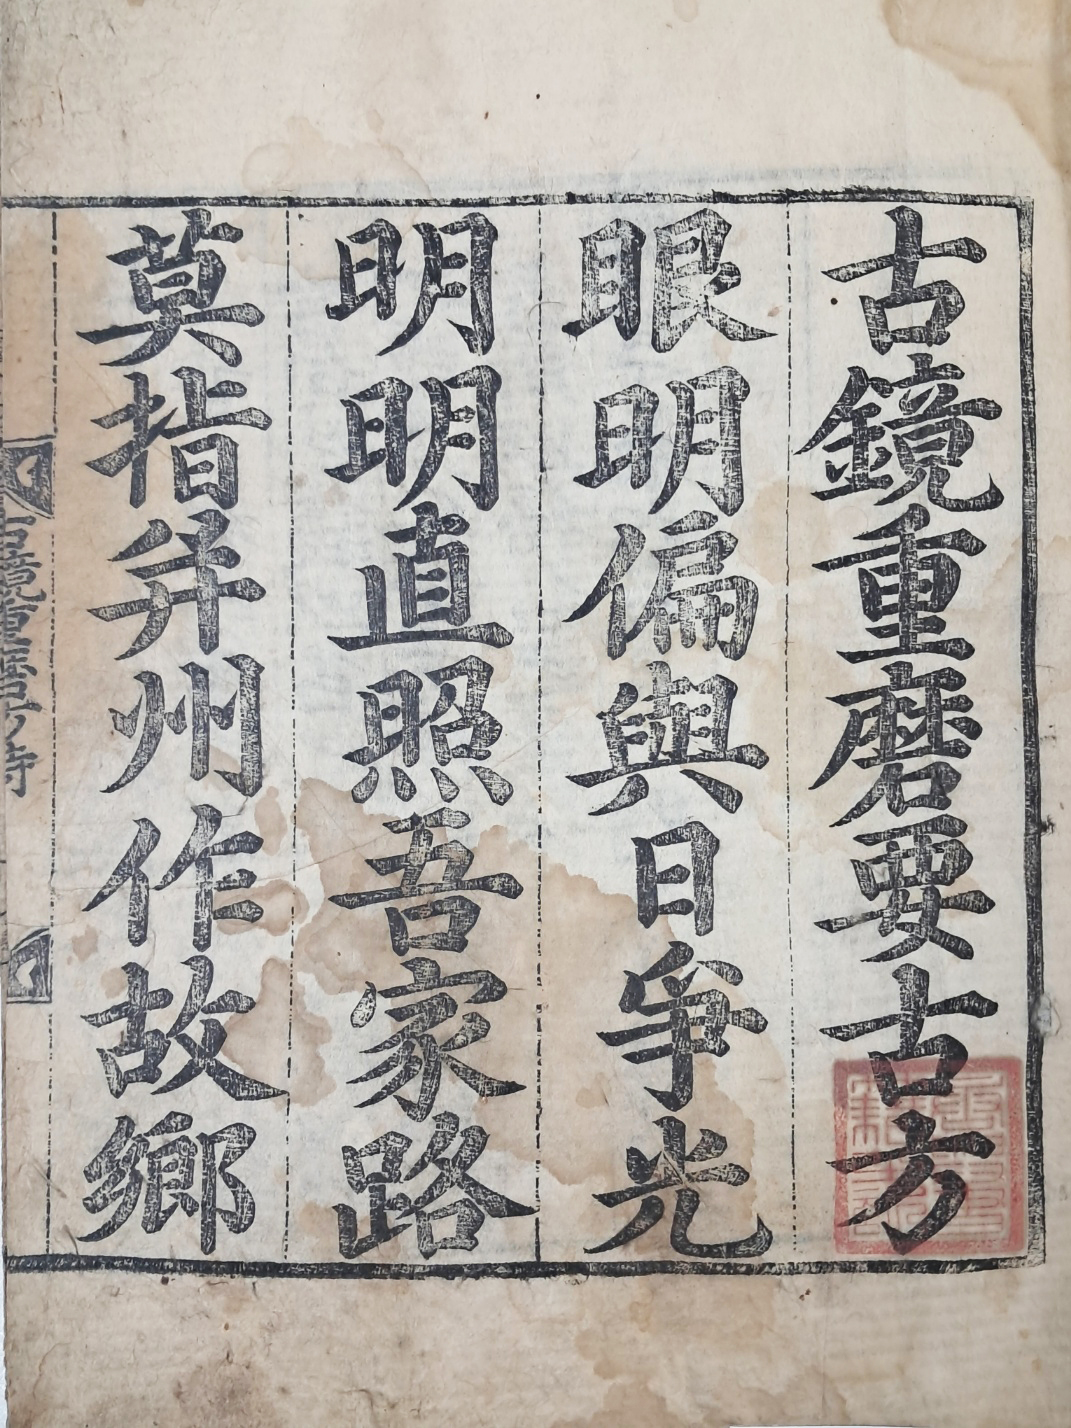 古鏡重磨要古方
眼明偏與日爭光
明明直照吾家路
莫指并州作故鄉